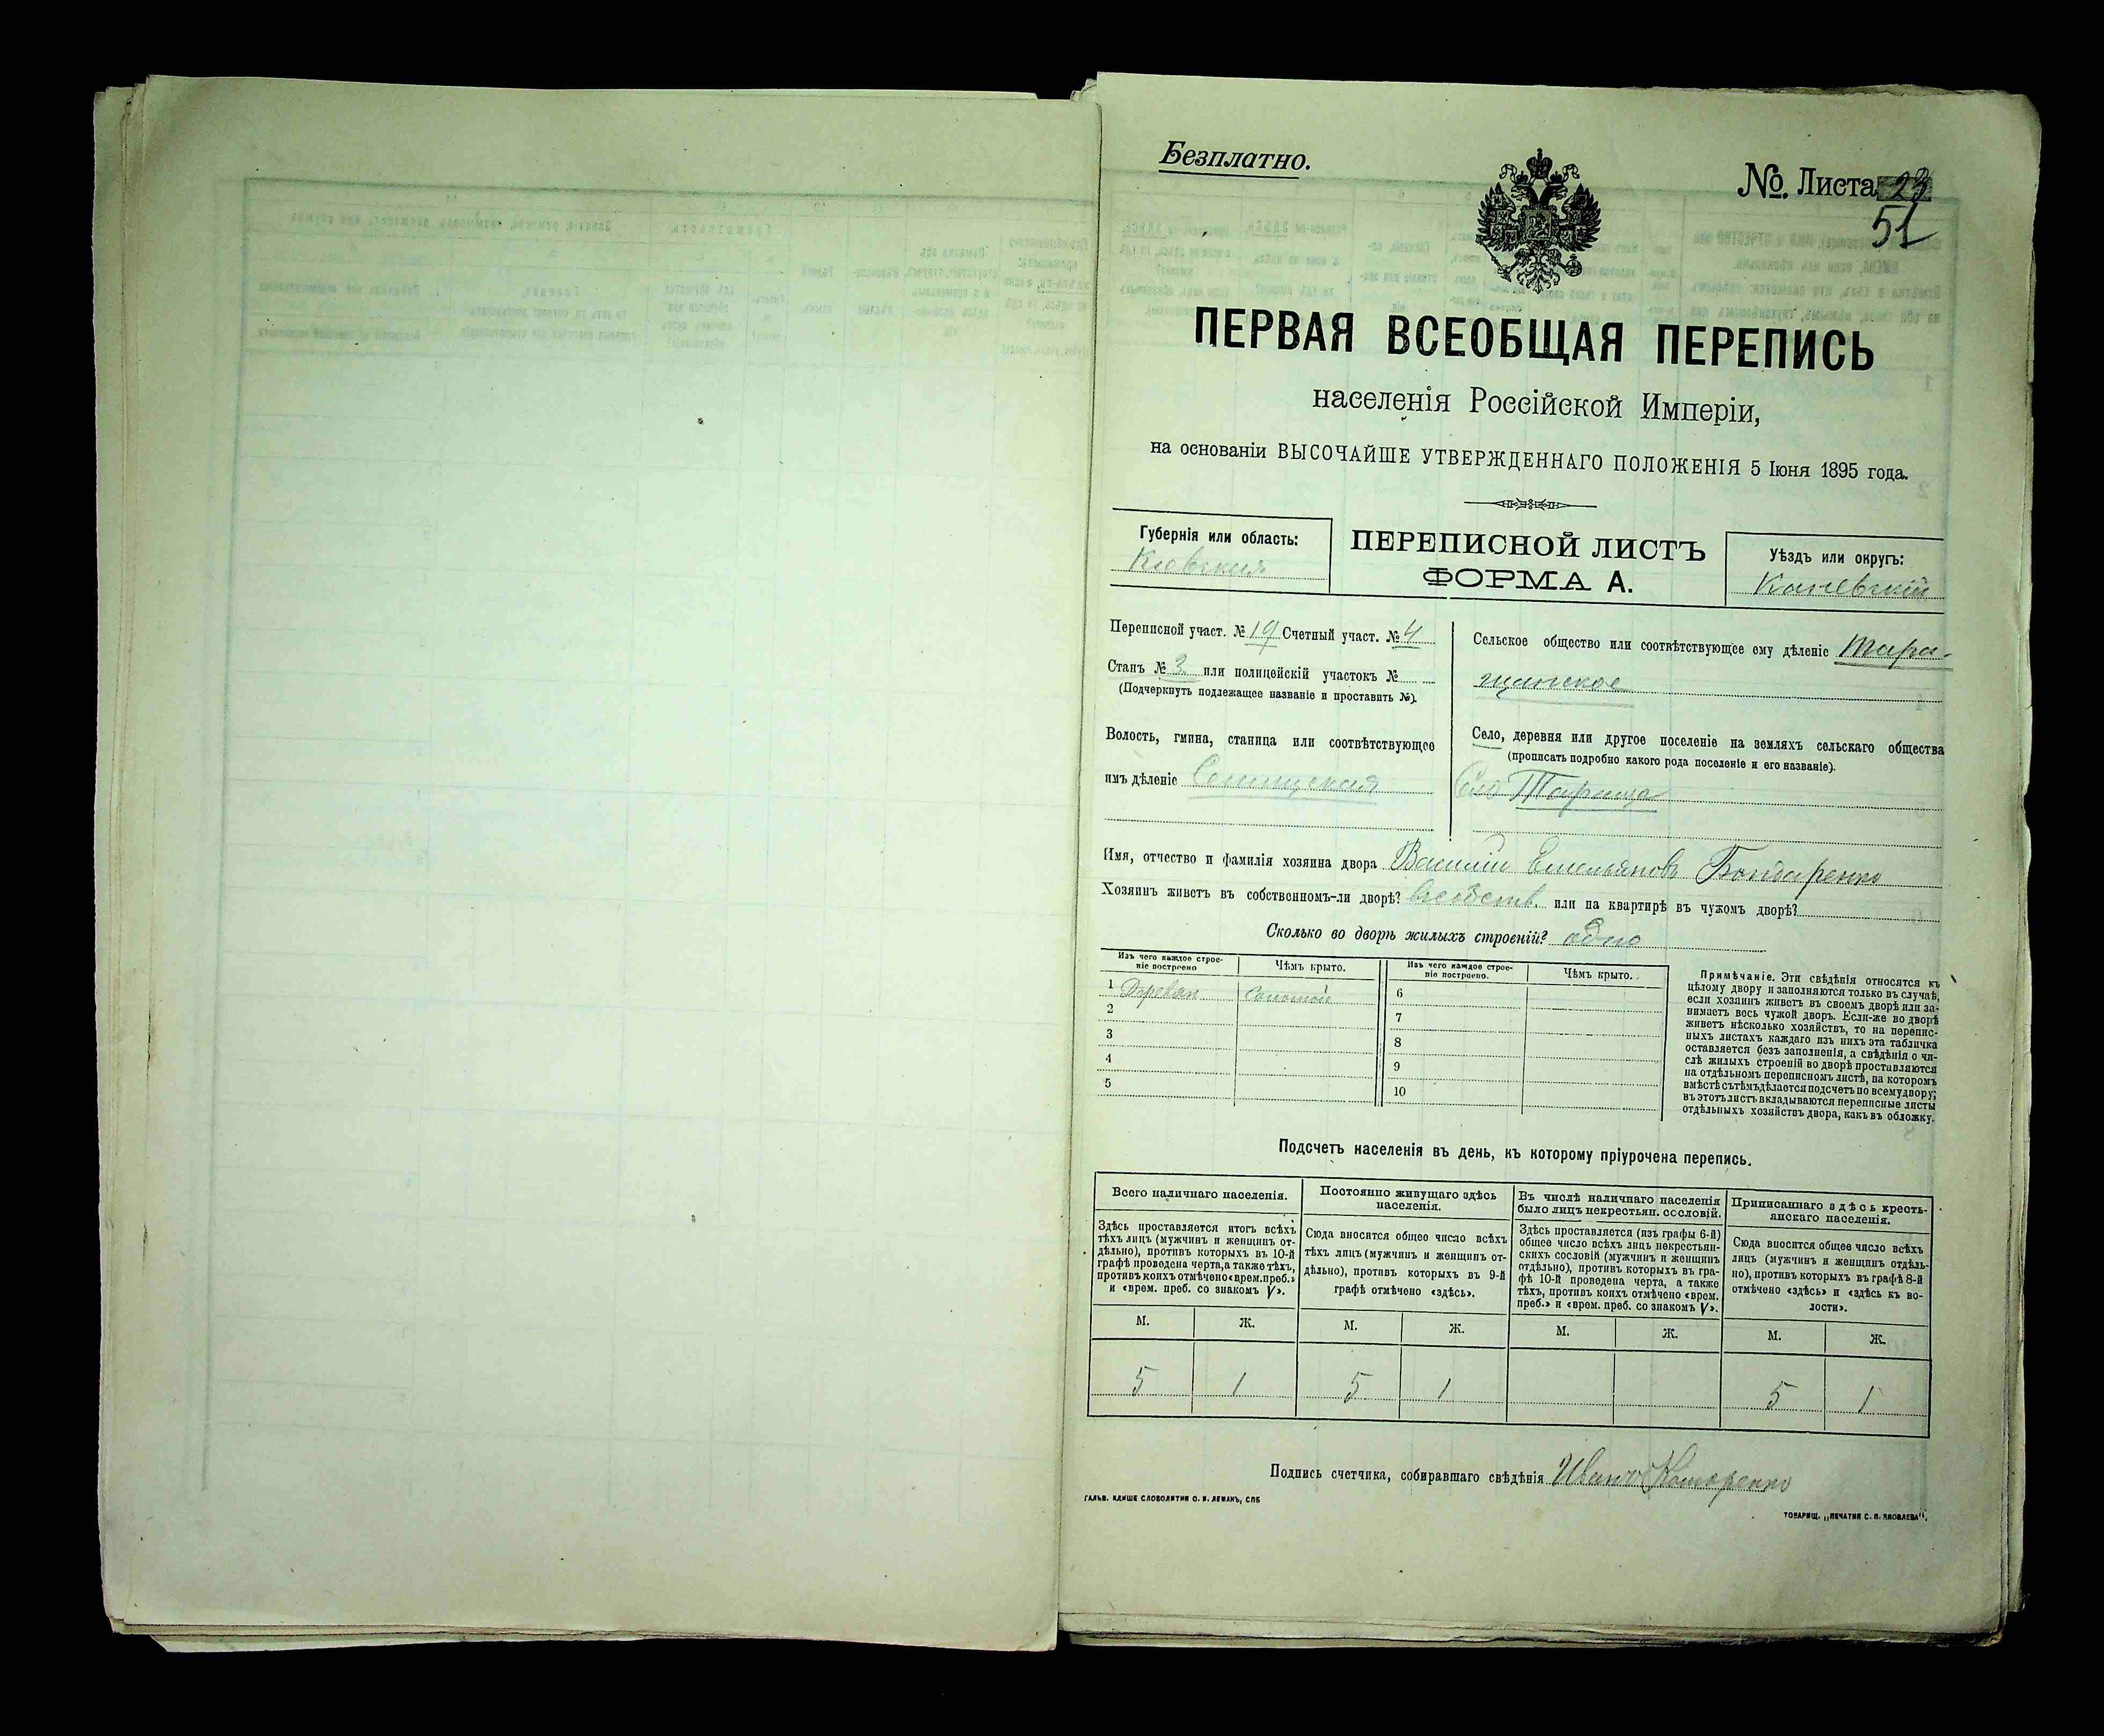 Безплатно.
№. Листа 23
51
ПЕРВАЯ ВСЕОБЩАЯ ПЕРЕПИСЬ
населенія Россійской Имперіи,
на основаніи ВЫСОЧАЙШЕ УТВЕРЖДЕННАГО ПОЛОЖЕНІЯ 5 Іюня 1895 года.
Губернія или область:
Кіевская
ПЕРЕПИСНОЙ ЛИСТЪ
ФОРМА А.
Уѣздъ или округъ:
Каневскій
Переписной участ. № 19 Счетный участ. № 4
Станъ № 3 или полицейскій участокъ №
(Подчеркнуть подлежащее названіе и проставить №).
Волость, гмина, станица или соотвѣтствующее
имъ дѣленіе
Сельское общество или соотвѣтствующее ему дѣленіе Тара-
щанское
Село, деревня или другое поселеніе на земляхъ сельскаго общества
(прописать подробно какого рода поселеніе и его названіе).
Село Тараща
Имя, отчество и фамилія хозяина двора Василій Емельяновъ Бондаренко
Хозяинъ живетъ въ собственномъ-ли дворѣ? въ собств. или на квартирѣ въ чужомъ дворѣ?
Сколько во дворѣ жилыхъ строеній? одно
Изъ чего каждое строе-
ніе построено
Чѣмъ крыто.
Изъ чего каждое строе-
ніе построено.
Чѣмъ крыто.
1 Деревян Соломой
2
3
4
5
6
7
8
9
10
Примѣчаніе. Эти свѣдѣнія относятся къ
цѣлому двору и заполняются только въ случаѣ,
если хозяинъ живетъ въ своемъ дворѣ или за-
нимаетъ весь чужой дворъ. Если-же во дворѣ
живетъ нѣсколько хозяйствъ, то на перепис-
ныхъ листахъ каждаго изъ нихъ эта табличка
оставляется безъ заполненія, а свѣдѣнія о чи-
слѣ жилыхъ строеній во дворѣ проставляются
на отдѣльномъ переписномъ листѣ, на которомъ
вмѣстѣ съ тѣмъ дѣлается подсчетъ по всему двору;
въ этотъ листъ вкладываются переписные листы
отдѣльныхъ хозяйствъ двора, какъ въ обложку.
Подсчетъ населенія въ день, къ которому пріурочена перепись.
Всего наличнаго населенія.
Здѣсь проставляется итогъ всѣхъ
тѣхъ лицъ (мужчинъ и женщинъ от-
дѣльно), противъ которыхъ въ 10-й
графѣ проведена черта, а также тѣхъ,
противъ коихъ отмѣчено «врем. преб.»
и «врем. преб. со знакомъ V».
Постоянно живущаго здѣсь
населенія.
Сюда вносится общее число всѣхъ
тѣхъ лицъ (мужчинъ и женщинъ от-
дѣльно), противъ которыхъ въ 9-й
графѣ отмѣчено «здѣсь».
Въ числѣ наличнаго населенія
было лицъ некрестьян. сословій.
Здѣсь проставляется (изъ графы 6-й)
общее число всѣхъ лицъ некрестьян-
скихъ сословій (мужчинъ и женщинъ
отдѣльно), противъ которыхъ въ гра-
фѣ 10-й проведена черта, а также
тѣхъ, противъ коихъ отмѣчено «врем.
преб.» и «врем. преб. со знакомъ V».
Приписаннаго здѣсь кресть-
янскаго населенія.
Сюда вносится общее число всѣхъ
лицъ (мужчинъ и женщинъ отдѣль-
но), противъ которыхъ въ графѣ 8-й
отмѣчено «здѣсь» и «здѣсь къ во-
лости».
М. Ж. М. Ж. М. Ж. М. Ж.
5 1 5 1 5 1
Подпись счетчика, собиравшаго свѣдѣнія Иванъ
ГАЛЬВ. КЛИШЕ СЛОВОЛИТНИ О. И. ЛЕМАНЪ, СПБ
ТОВАРИЩ. „ПЕЧАТНЯ С. П. ЯКОВЛЕВА“.